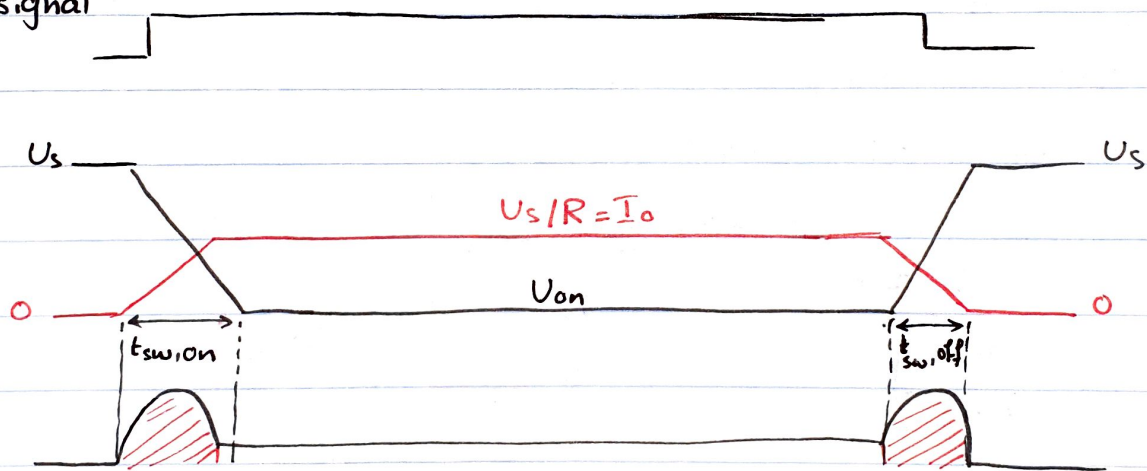 signal
Us
Us
Us/R = Io
0
Uon
0
tsw,on
tsw,off